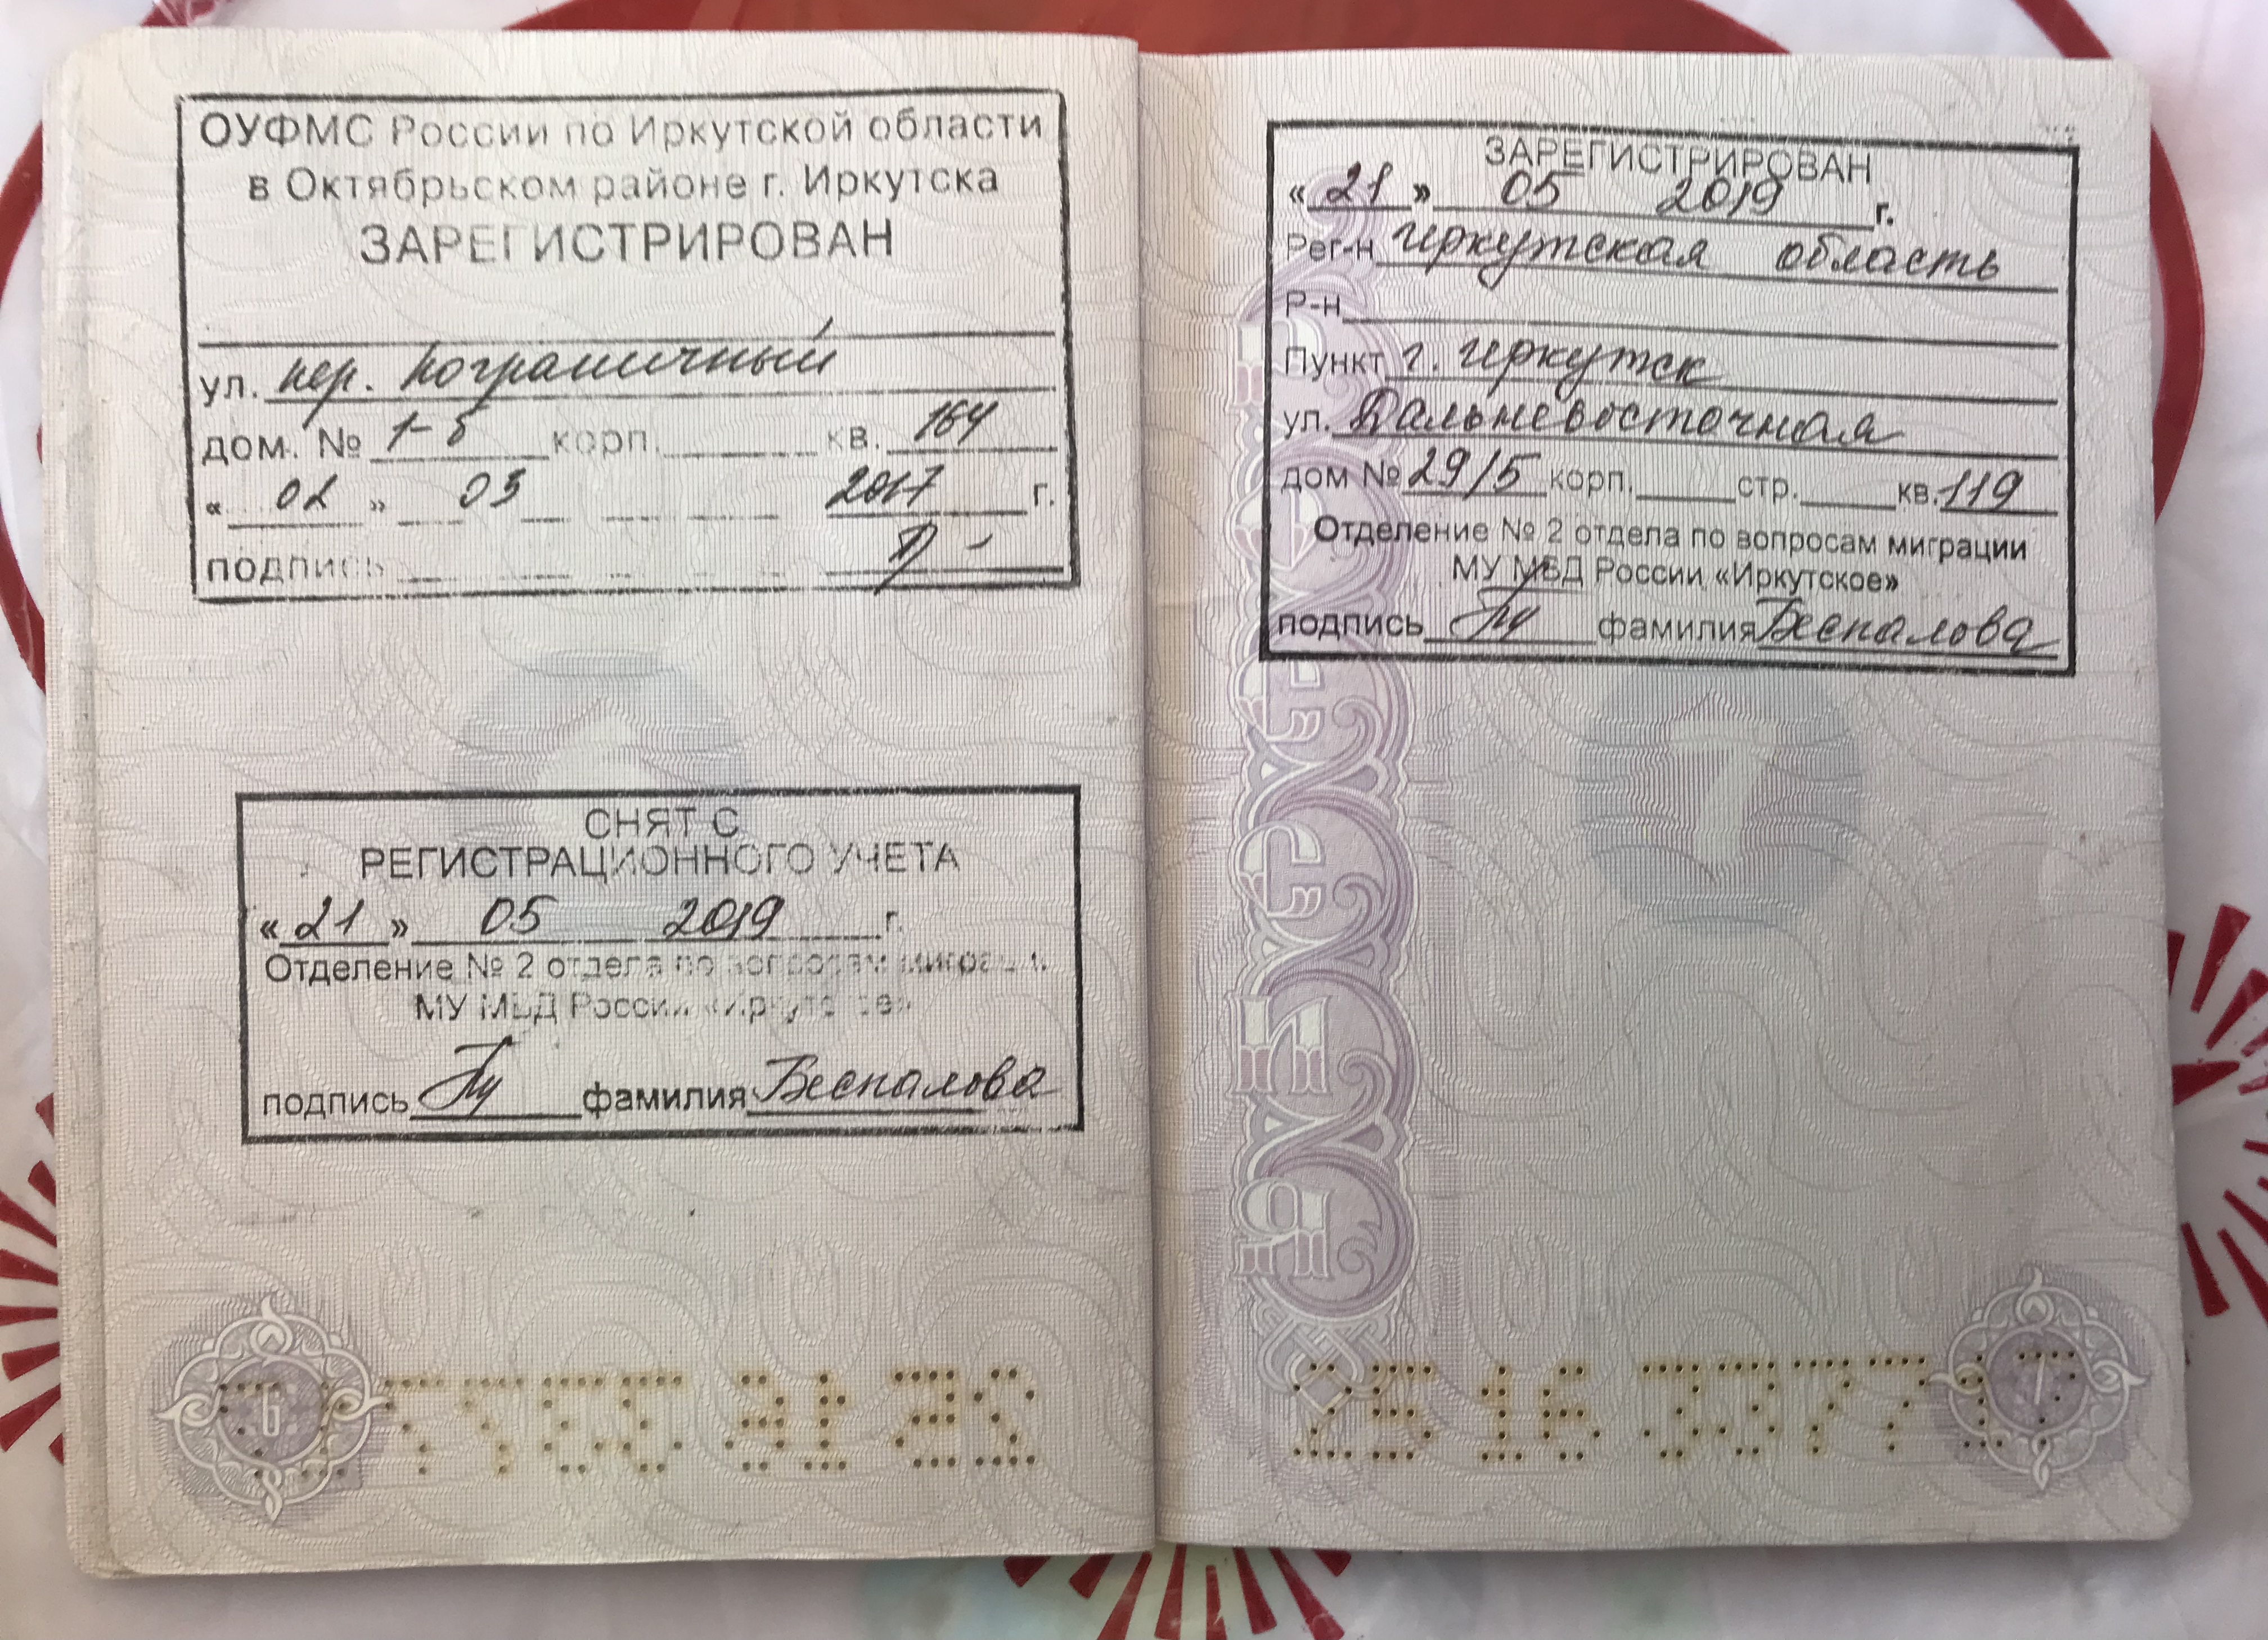 ОУФМС России по Иркутской области
в Октябрьском районе г. Иркутска
ЗАРЕГИСТРИРОВАН
ул. пер. Пограничный
дом. № 1-б корп. кв. 164
« 02 » 03 2017 г.
подпись
СНЯТ С
РЕГИСТРАЦИОННОГО УЧЕТА
« 21 » 05 2019 г.
Отделение № 2 отдела по вопросам миграции
МУ МВД России «Иркутское»
подпись фамилия Беспалова
6
ЗАРЕГИСТРИРОВАН
« 21 » 05 2019 г.
Рег-н Иркутская область
Р-н
Пункт г. Иркутск
ул. Дальневосточная
дом № 29/5 корп. стр. кв. 119
Отделение № 2 отдела по вопросам миграции
МУ МВД России «Иркутское»
подпись фамилия Беспалова
7
25 16 337717
7